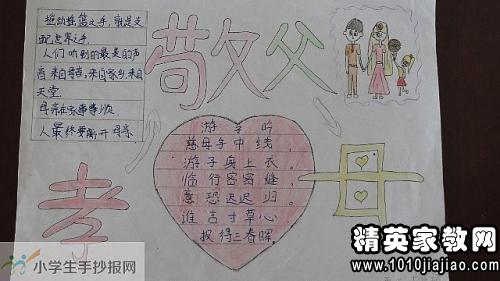 摇动摇篮之手，就是支
配世界之手
人们听到的最美的声
音来自母亲，来自家乡，来自
天堂
母亲在家事事顺
人最终要离开母亲
敬父
孝
母
游子吟
慈母手中线，
游子身上衣。
临行密密缝，
意恐迟迟归。
谁言寸草心
报得三春晖。
小学生手抄报网
精英家教网
www.1010jiajiao.com